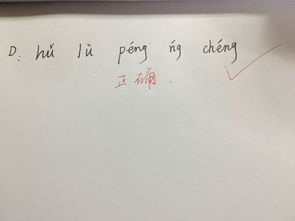 D: hǔ lù péng ńg chéng
正确.